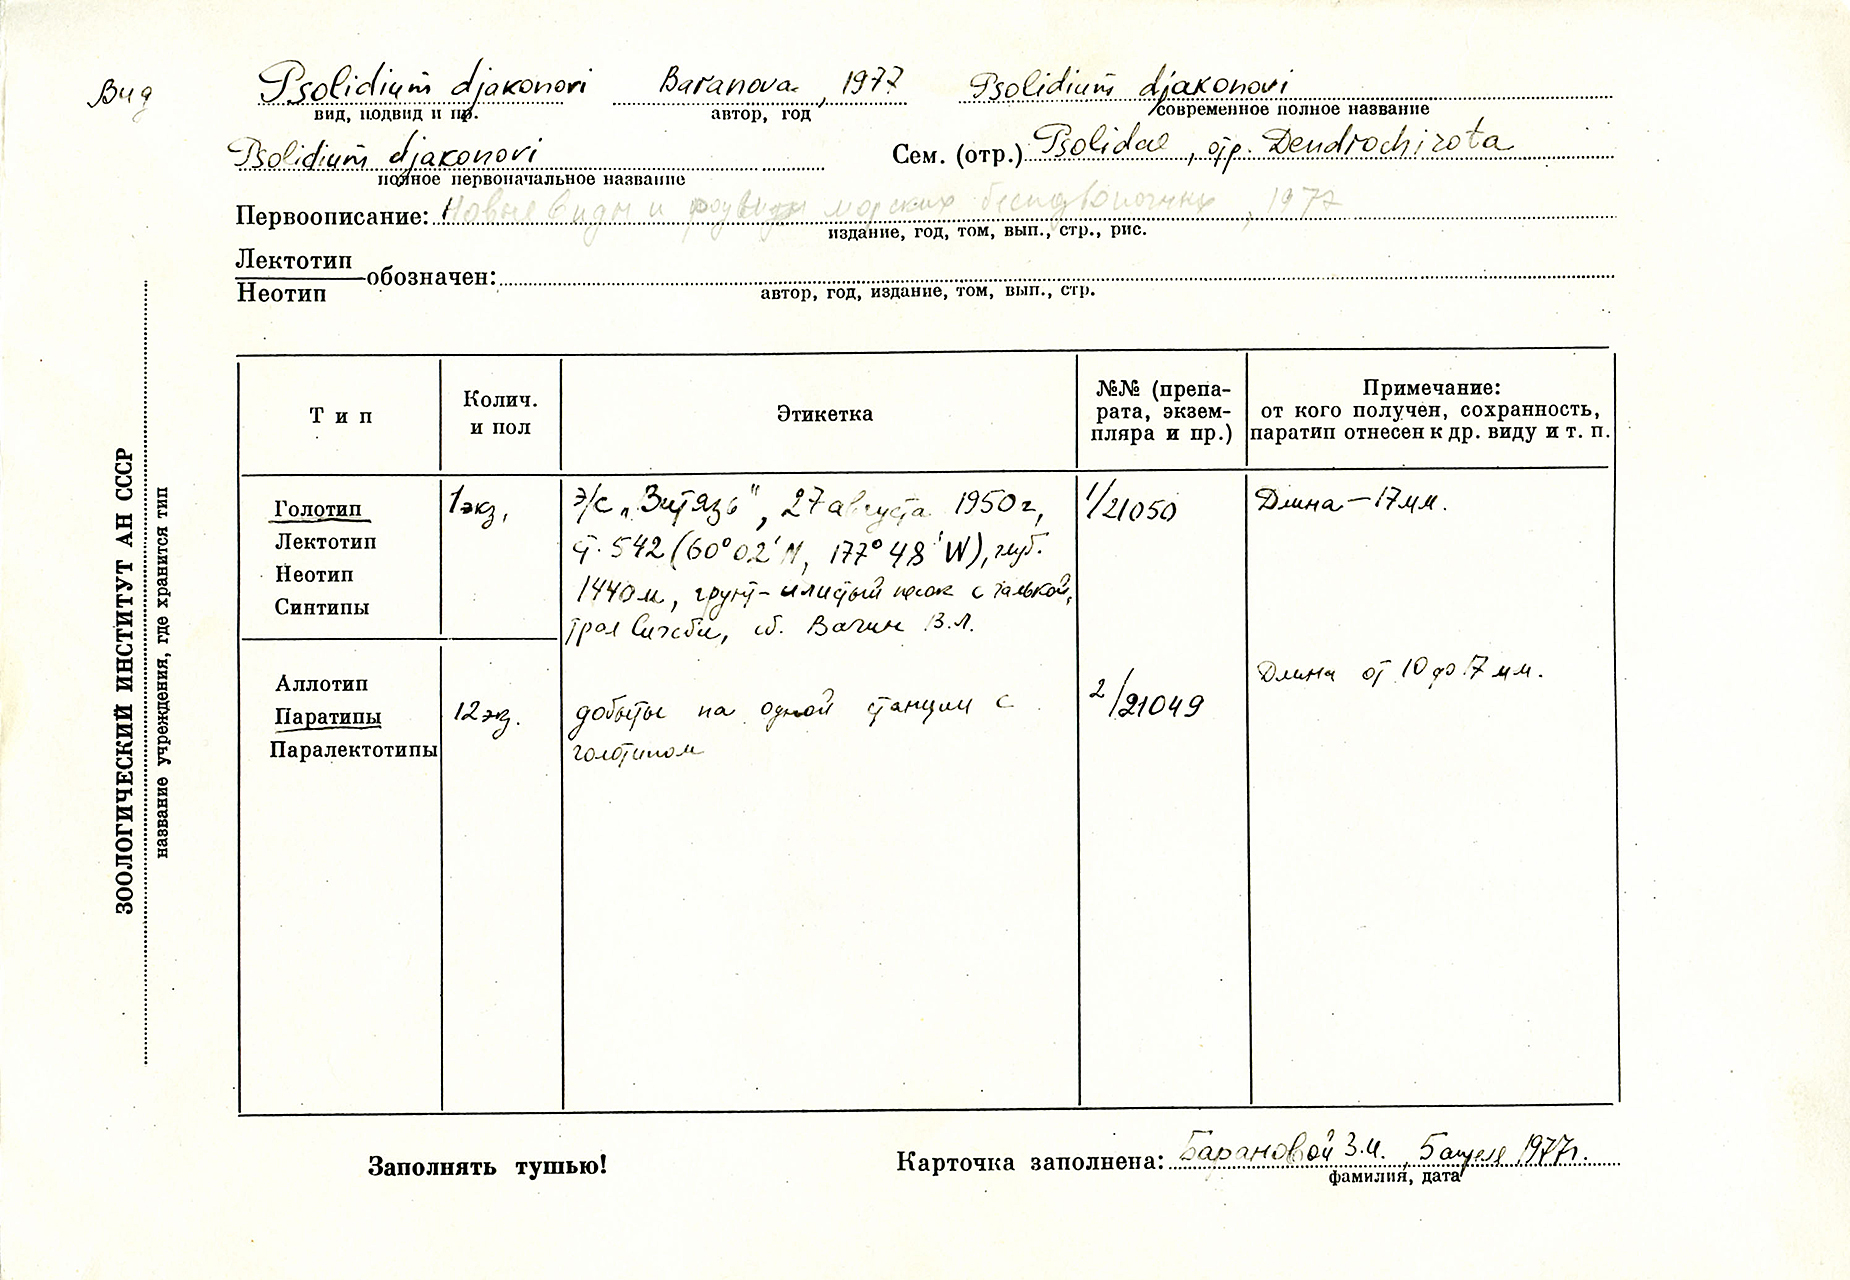 Вид
Psolidium djakonovi Baranova, 1977 Psolidium djakonovi
вид, подвид и пр. автор, год современное полное название
Psolidium djakonovi Сем. (отр.) Psolidae, отр. Dendrochirota
полное первоначальное название
Первоописание: Новые виды и роды морских беспозвоночных, 1977
издание, год, том, вып., стр., рис.
Лектотип
Неотип обозначен:
автор, год, издание, том, вып., стр.
ЗООЛОГИЧЕСКИЙ ИНСТИТУТ АН СССР
название учреждения, где хранится тип
Тип
Колич.
и пол
Этикетка
№№ (препа-
рата, экзем-
пляра и пр.)
Примечание:
от кого получен, сохранность,
паратип отнесен к др. виду и т. п.
Голотип
Лектотип
Неотип
Синтипы
1 экз.
э/с "Витязь", 27 августа 1950 г.,
ст. 542 (60°02'N, 177°48'W), глуб.
1440 м, грунт - илистый песок с галькой,
трал Сигсби, сб. Вагин В.Л.
1/21050
Длина — 17 мм.
Аллотип
Паратипы
Паралектотипы
12 экз.
добыты на одной станции с
голотипом
2/21049
Длина от 10 до 17 мм.
Заполнять тушью!
Карточка заполнена: Барановой З.И., 5 апреля 1977 г.
фамилия, дата